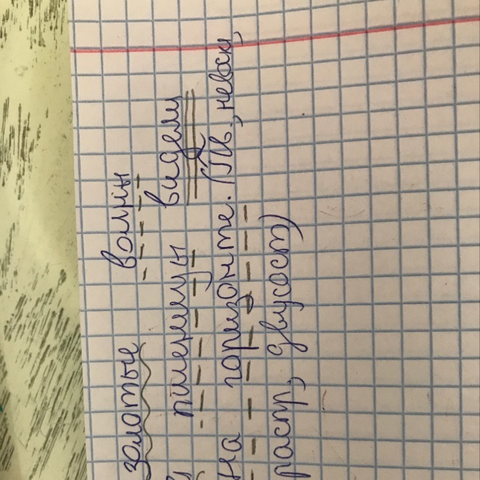 золотые волны
пшеницы видели
на горизонте. (Пв., невоск,
распр, двусост)